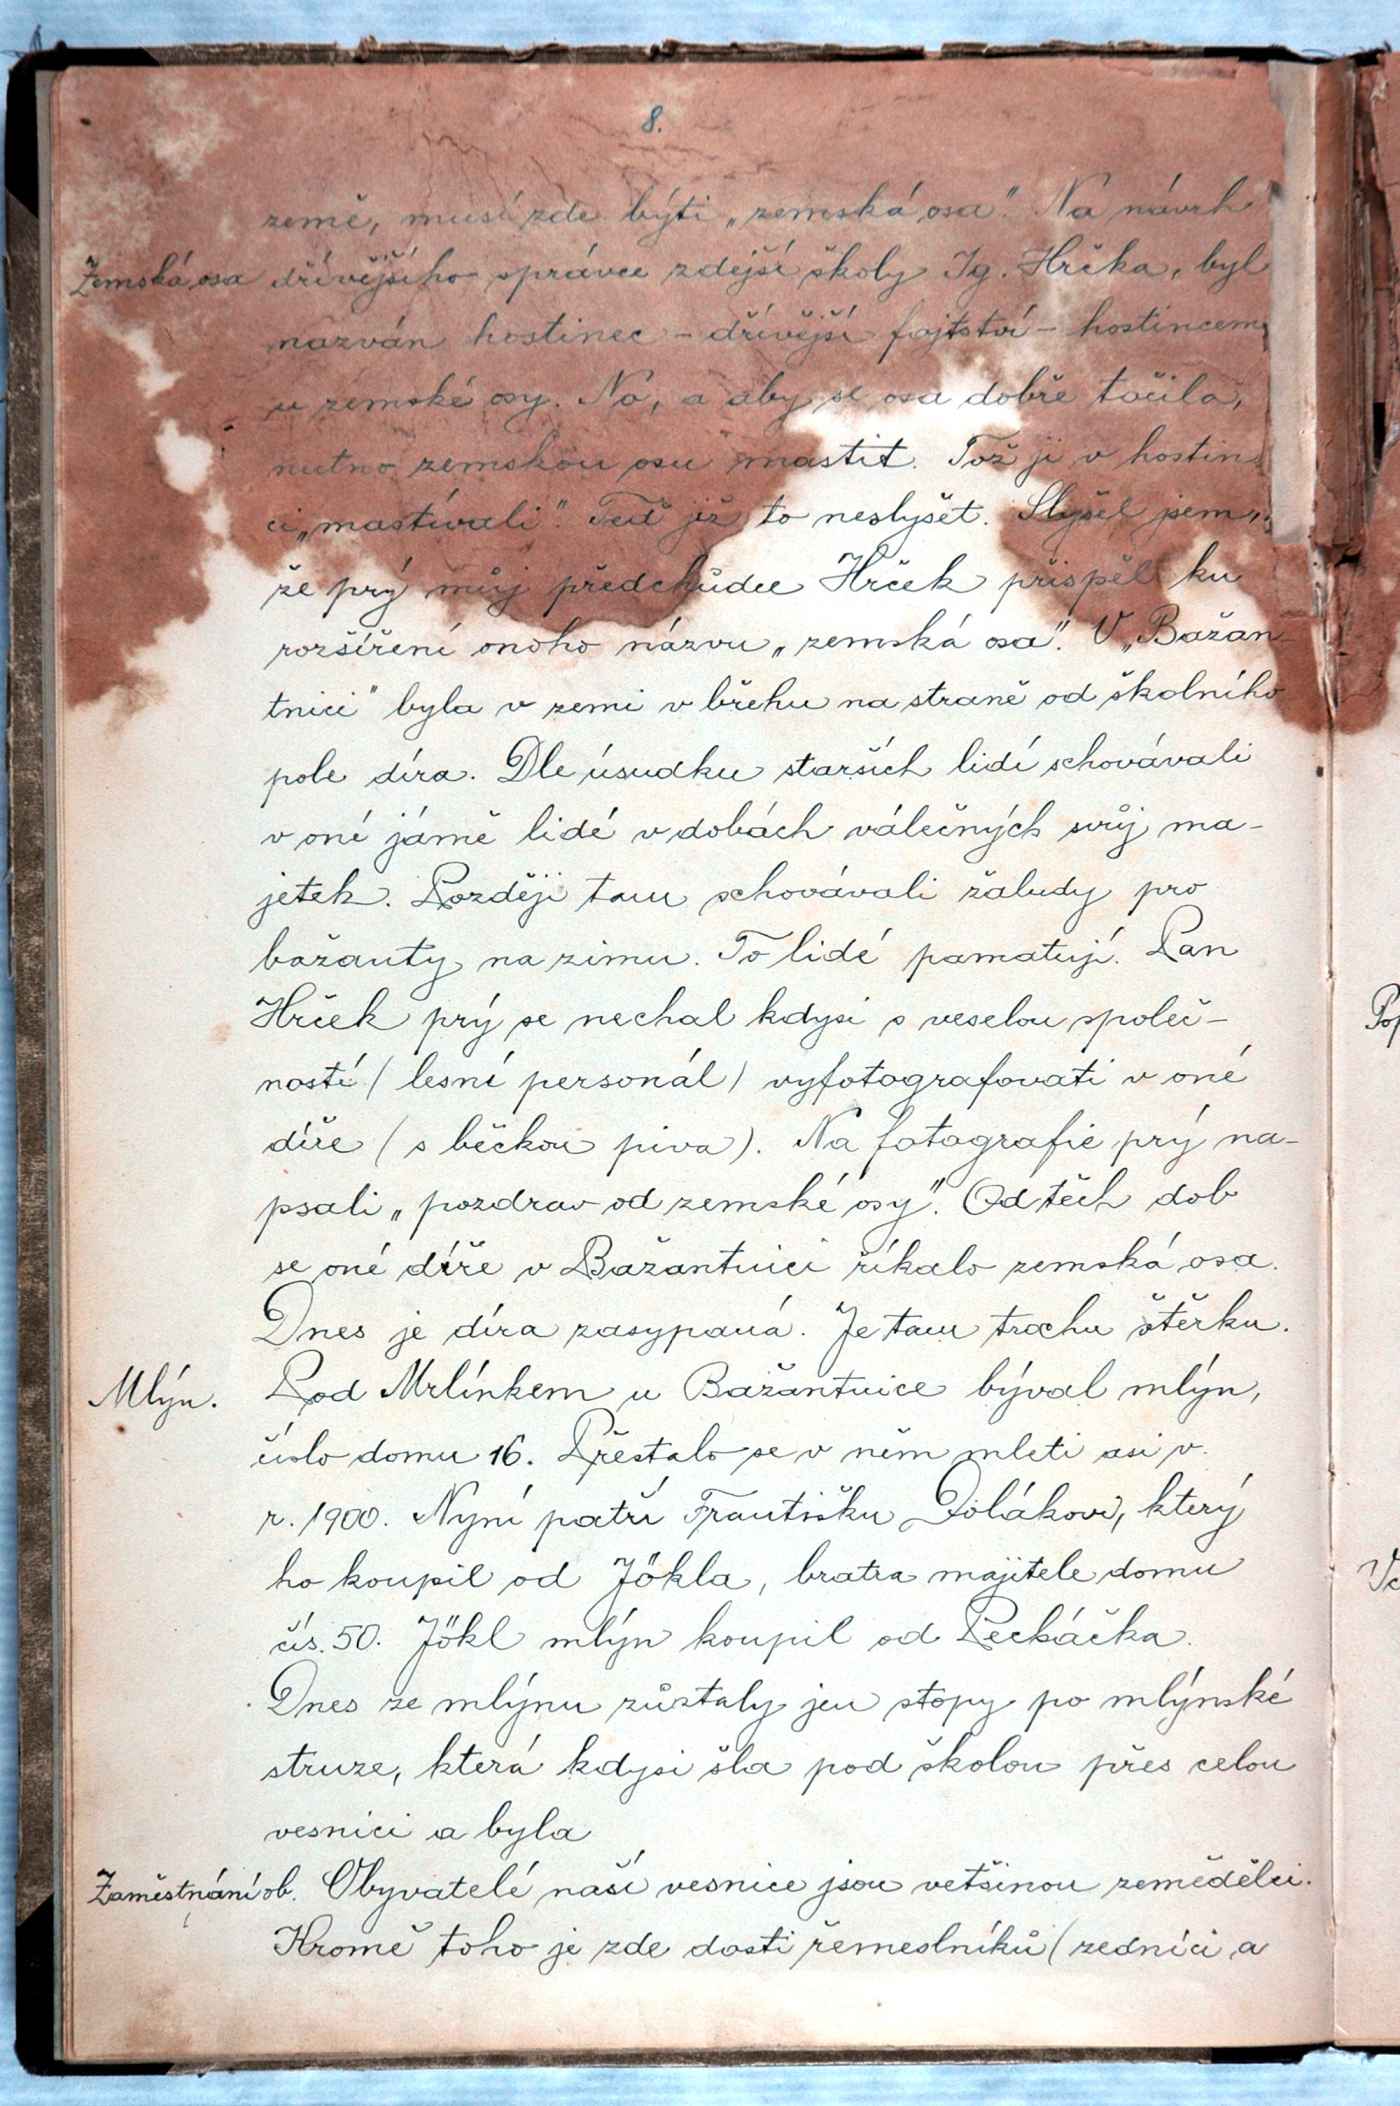 8.
země, musí zde býti „zemská osa". Na návrh
Zemská osa dřívějšího správce zdejší školy Ig. Hrčka, byl
nazván hostinec - dřívější fojtství - hostincem
u zemské osy. No, a aby se osa dobře točila,
nutno zemskou osu mastit. Tož ji v hostin
ci „mastívali". Teď již to neslyšet. Slyšel jsem,
že prý můj předchůdce Hrček přispěl ku
rozšíření onoho názvu „zemská osa". V „Bažan-
tnici" byla v zemi v břehu na straně od školního
pole díra. Dle úsudku starších lidí schovávali
v oné jámě lidé v dobách válečných svůj ma-
jetek. Později tam schovávali žaludy pro
bažanty na zimu. To lidé pamatují. Pan
Hrček prý se nechal kdysi s veselou společ-
ností (lesní personál) vyfotografovati v oné
díře (s béčkou piva). Na fotografie prý na-
psali „pozdrav od zemské osy". Od těch dob
se oné díře v Bažantnici říkalo zemská osa.
Dnes je díra zasypaná. Je tam trochu štěrku.
Mlýn. Pod Mrlínkem u Bažantnice býval mlýn,
číslo domu 16. Přestalo se v něm mleti asi v
r. 1900. Nyní patří Františku Dolákovi, který
ho koupil od Jökla, bratra majitele domu
čís. 50. Jökl mlýn koupil od Peckáčka.
Dnes ze mlýnu zůstaly jen stopy po mlýnské
struze, která kdysi šla pod školou přes celou
vesnici a byla
Zaměstnání ob. Obyvatelé naší vesnice jsou vetšinou zemědělci.
Kromě toho je zde dosti řemeslníků (zedníci a